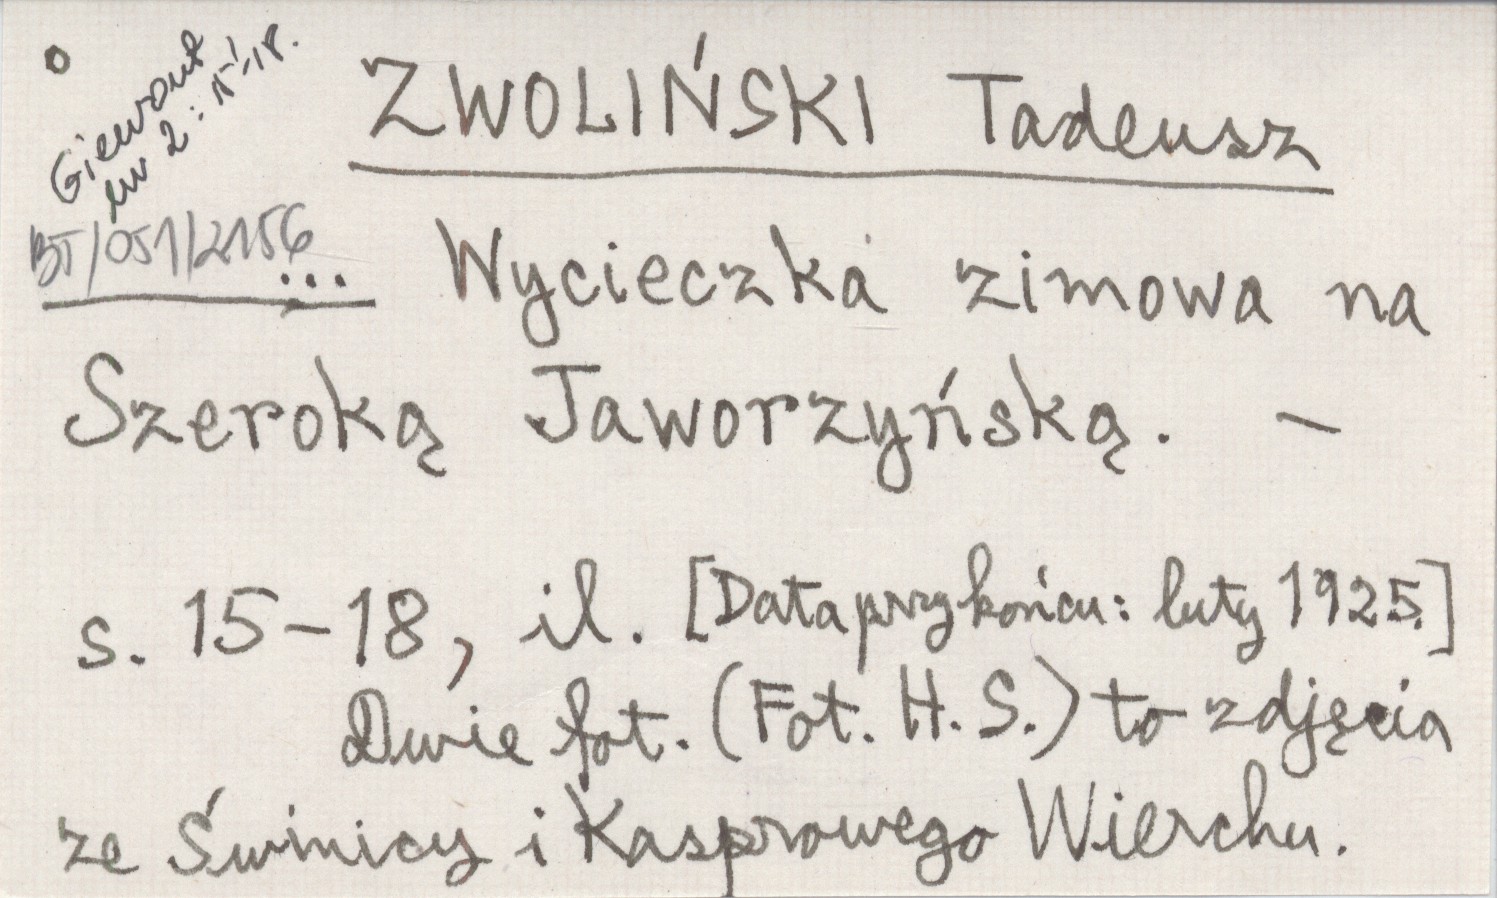 Giewont
nr 2: 15-18.
BT/051/2156
...
ZWOLIŃSKI Tadeusz
Wycieczka zimowa na
Szeroką Jaworzyńską. —
s. 15-18, il. [Data przy końcu: luty 1925.]
Dwie fot. (Fot. H. S.) to zdjęcia
ze Świnicy i Kasprowego Wierchu.